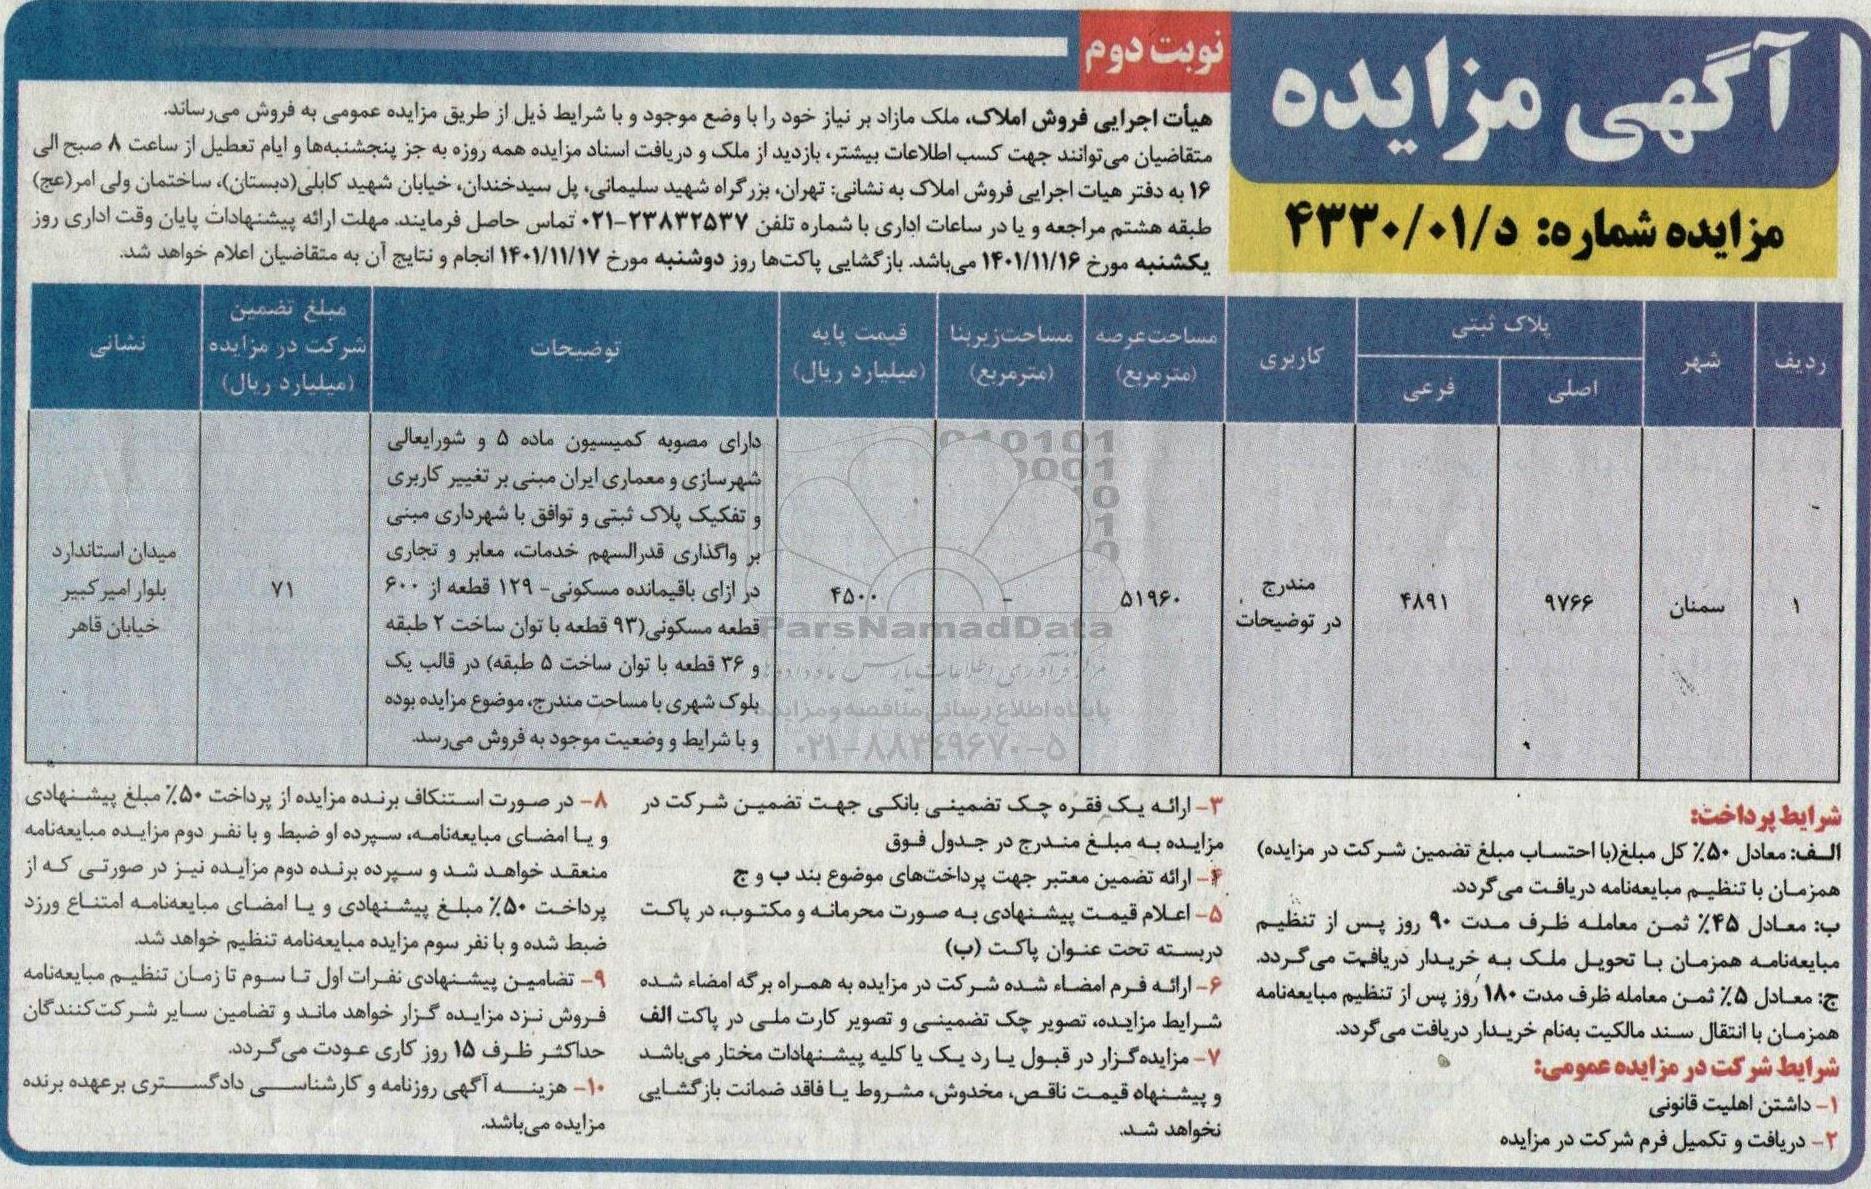 آگهی مزایده
نوبت دوم
مزایده شماره: د/۴۳۳۰/۰۱
هیأت اجرایی فروش املاک، ملک مازاد بر نیاز خود را با وضع موجود و با شرایط ذیل از طریق مزایده عمومی به فروش می‌رساند.
متقاضیان می‌توانند جهت کسب اطلاعات بیشتر، بازدید از ملک و دریافت اسناد مزایده همه روزه به جز پنجشنبه‌ها و ایام تعطیل از ساعت ۸ صبح الی
۱۶ به دفتر هیات اجرایی فروش املاک به نشانی: تهران، بزرگراه شهید سلیمانی، پل سیدخندان، خیابان شهید کابلی(دبستان)، ساختمان ولی امر(عج)
طبقه هشتم مراجعه و یا در ساعات اداری با شماره تلفن ۲۳۸۳۲۵۳۷-۰۲۱ تماس حاصل فرمایند. مهلت ارائه پیشنهادات پایان وقت اداری روز
یکشنبه مورخ ۱۴۰۱/۱۱/۱۶ می‌باشد. بازگشایی پاکت‌ها روز دوشنبه مورخ ۱۴۰۱/۱۱/۱۷ انجام و نتایج آن به متقاضیان اعلام خواهد شد.
ردیف
شهر
پلاک ثبتی
اصلی
فرعی
کاربری
مساحت عرصه
(مترمربع)
مساحت زیربنا
(مترمربع)
قیمت پایه
(میلیارد ریال)
توضیحات
مبلغ تضمین
شرکت در مزایده
(میلیارد ریال)
نشانی
۱
سمنان
۹۷۶۶
۴۸۹۱
مندرج
در توضیحات
۵۱۹۶۰
-
۴۵۰۰
دارای مصوبه کمیسیون ماده ۵ و شورایعالی
شهرسازی و معماری ایران مبنی بر تغییر کاربری
و تفکیک پلاک ثبتی و توافق با شهرداری مبنی
بر واگذاری قدرالسهم خدمات، معابر و تجاری
در ازای باقیمانده مسکونی- ۱۲۹ قطعه از ۶۰۰
قطعه مسکونی(۹۳ قطعه با توان ساخت ۲ طبقه
و ۳۶ قطعه با توان ساخت ۵ طبقه) در قالب یک
بلوک شهری با مساحت مندرج، موضوع مزایده بوده
و با شرایط و وضعیت موجود به فروش می‌رسد.
۷۱
میدان استاندارد
بلوار امیرکبیر
خیابان قاهر
ParsNamadData
پایگاه اطلاع رسانی مناقصه و مزایده
۰۲۱-۸۸۳۴۹۶۷۰-۵
شرایط پرداخت:
الف: معادل ۵۰٪ کل مبلغ(با احتساب مبلغ تضمین شرکت در مزایده)
همزمان با تنظیم مبایعه‌نامه دریافت می‌گردد.
ب: معادل ۴۵٪ ثمن معامله ظرف مدت ۹۰ روز پس از تنظیم
مبایعه‌نامه همزمان با تحویل ملک به خریدار دریافت می‌گردد.
ج: معادل ۵٪ ثمن معامله ظرف مدت ۱۸۰ روز پس از تنظیم مبایعه‌نامه
همزمان با انتقال سند مالکیت به‌نام خریدار دریافت می‌گردد.
شرایط شرکت در مزایده عمومی:
۱- داشتن اهلیت قانونی
۲- دریافت و تکمیل فرم شرکت در مزایده
۳- ارائه یک فقره چک تضمینی بانکی جهت تضمین شرکت در
مزایده به مبلغ مندرج در جدول فوق
۴- ارائه تضمین معتبر جهت پرداخت‌های موضوع بند ب و ج
۵- اعلام قیمت پیشنهادی به صورت محرمانه و مکتوب، در پاکت
دربسته تحت عنوان پاکت (ب)
۶- ارائه فرم امضاء شده شرکت در مزایده به همراه برگه امضاء شده
شرایط مزایده، تصویر چک تضمینی و تصویر کارت ملی در پاکت الف
۷- مزایده‌گزار در قبول یا رد یک یا کلیه پیشنهادات مختار می‌باشد
و پیشنهاد قیمت ناقص، مخدوش، مشروط یا فاقد ضمانت بازگشایی
نخواهد شد.
۸- در صورت استنکاف برنده مزایده از پرداخت ۵۰٪ مبلغ پیشنهادی
و یا امضای مبایعه‌نامه، سپرده او ضبط و با نفر دوم مزایده مبایعه‌نامه
منعقد خواهد شد و سپرده برنده دوم مزایده نیز در صورتی که از
پرداخت ۵۰٪ مبلغ پیشنهادی و یا امضای مبایعه‌نامه امتناع ورزد
ضبط شده و با نفر سوم مزایده مبایعه‌نامه تنظیم خواهد شد.
۹- تضامین پیشنهادی نفرات اول تا سوم تا زمان تنظیم مبایعه‌نامه
فروش نزد مزایده گزار خواهد ماند و تضامین سایر شرکت‌کنندگان
حداکثر ظرف ۱۵ روز کاری عودت می‌گردد.
۱۰- هزینه آگهی روزنامه و کارشناسی دادگستری برعهده برنده
مزایده می‌باشد.